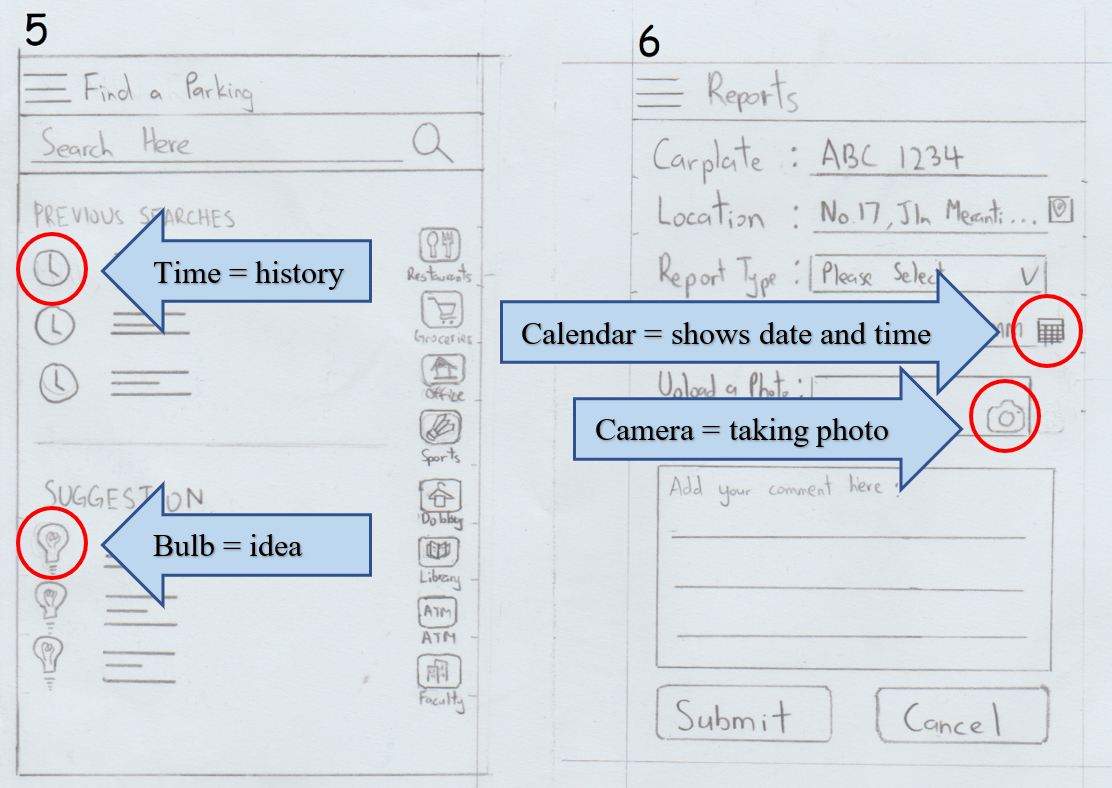 5
Find a Parking
Search Here
PREVIOUS SEARCHES
Time = history
Restaurants
Groceries
Office
Sports
SUGGESTION
Dobby
Bulb = idea
Library
ATM
ATM
Faculty
6
Reports
Carplate : ABC 1234
Location : No.17, Jln Meranti...
Report Type : Please Select
Calendar = shows date and time
Upload a Photo :
Camera = taking photo
Add your comment here :
Submit
Cancel